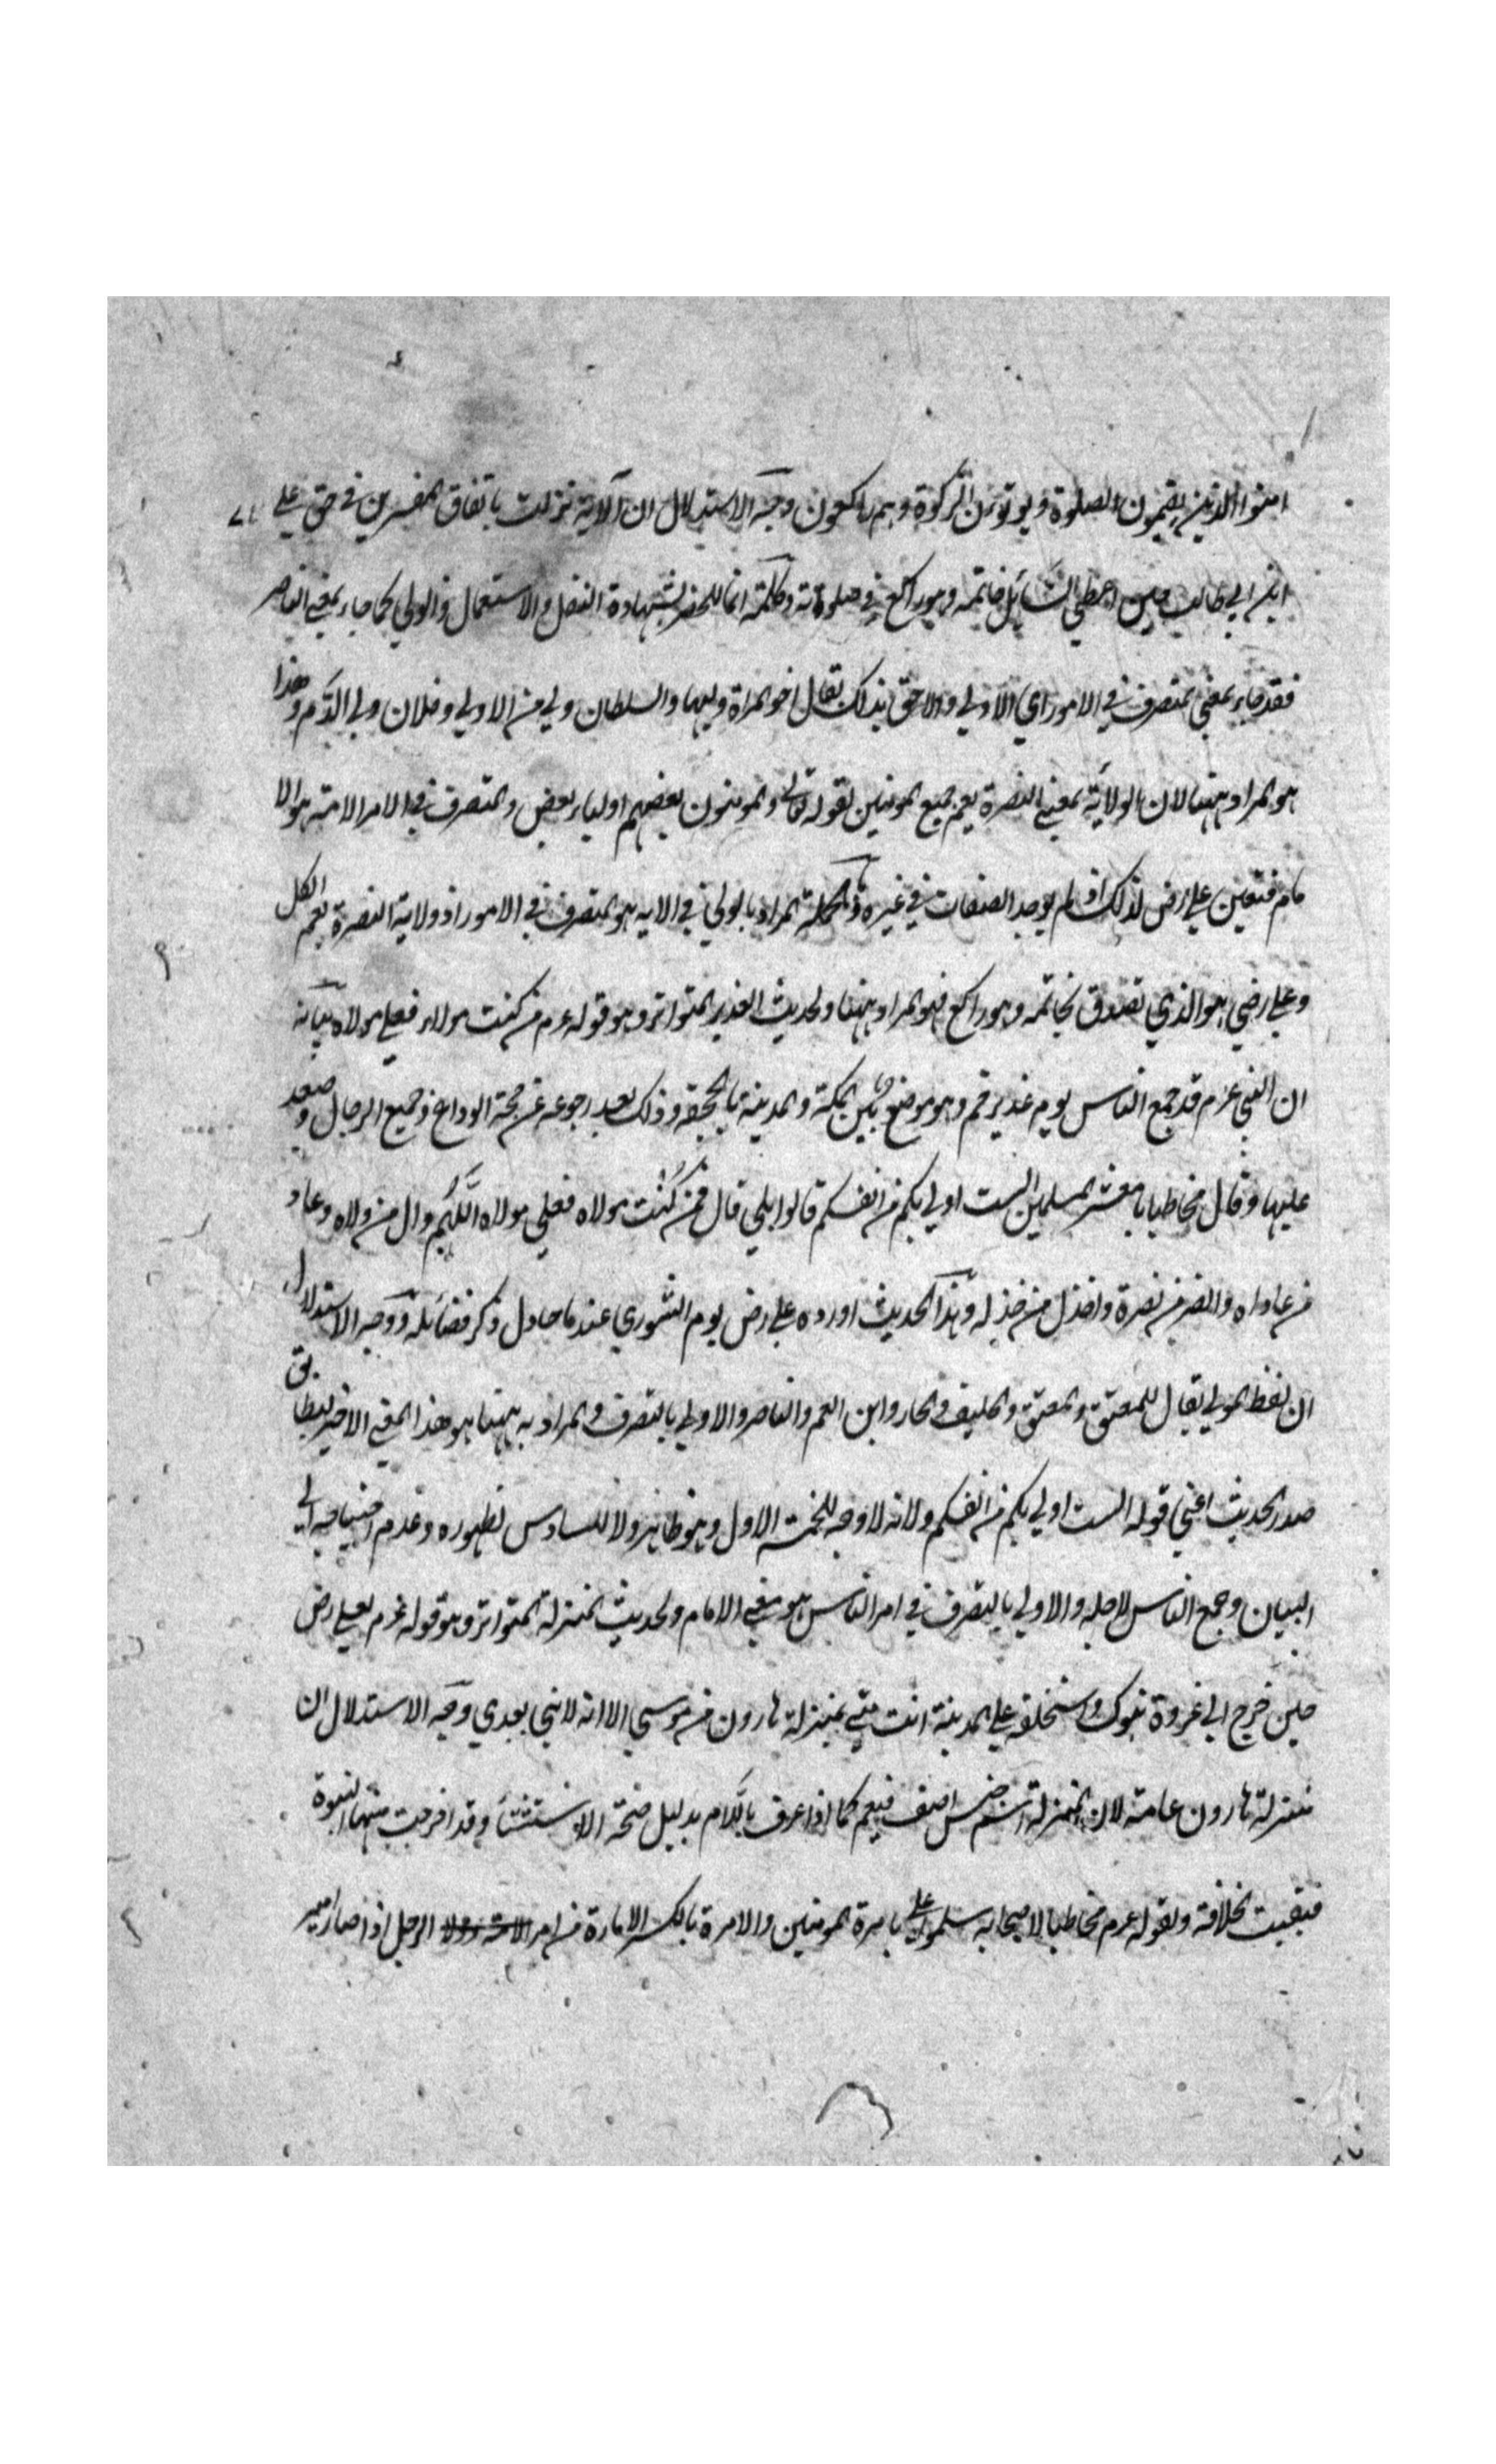 امنوا الذين يقيمون الصلوة ويوتون الزكوة وهم راكعون وجه الاستدلال ان الآية نزلت باتفاق المفسرين في حق علي
ابن ابي طالب حين اعطي السائل خاتمه وهو راكع في صلوته وكلمة انما للحصر بشهادة النقل والاستعمال والولي كما جاء بمعني الناصر
فقد جاء بمعني المتصرف في الامور اي الاولي والاحق بذلك يقال اخو المراة وليها والسلطان ولي من لا ولي وفلان ولي الدم وهذا
هو المراد ههنا لان الولاية بمعني النصرة يعم جميع المومنين لقوله تعالي والمومنون بعضهم اولياء بعض والمتصرف في الامر الامة هو الا
مام فتعين علي رض لذلك اذ لم يوجد الصفات في غيره وبالجملة المراد بالولي في الايه هو المتصرف في الامور اذ ولاية النصرة يعم الكل
وعلي رضي هو الذي تصدق بخاتمه وهو راكع فهو المراد ههنا ولحديث الغدير المتواتر وهو قوله عم من كنت مولاه فعلي مولاه بيانه
ان النبي عم قد جمع الناس يوم غدير خم وهو موضع بين المكة والمدينة بالجحفة وذلك بعد رجوعه عن حجة الوداع وجميع الرحال وصعد
عليها وقال مخاطبا يا معشر المسلمين الست اولي بكم من انفسكم قالوا بلي قال فمن كنت مولاه فعلي مولاه اللهم وال من ولاه وعاد
من عاداه وانصر من نصره واخذل من خذله وهذا الحديث اورده علي رض يوم الشوري عندما حاول ذكر فضائله ووجه الاستدلال
ان لفظ المولي يقال للمعتق والمعتق والحليف والجار وابن العم والناصر والاولي بالتصرف والمراد به ههنا هو هذا المعني الاخير ليطابق
صدر الحديث اعني قوله الست اولي بكم من انفسكم ولانه لا وجه للخمسة الاول وهو ظاهر ولا للسادس لظهوره وعدم احتياجه الي
البيان وجمع الناس لاجله والاولي بالتصرف في امر الناس هو معني الامام ولحديث المنزلة المتواتر وهو قوله عم لعلي رض
حين خرج الي غزوة تبوك واستخلفه علي المدينة انت مني بمنزلة هارون من موسي الا انه لا نبي بعدي وجه الاستدلال ان
منزلة هارون عامة لان المنزلة اسم جنس اضيف فيعم كما اذا عرف باللام بدليل صحة الاستثناء وقد اخرجت منها النبوة
فبقيت الخلافة ولقوله عم مخاطبا لاصحابه سلموا علي بامرة المومنين والامرة بالكسر الامارة من امر الرجل اذا صار امير